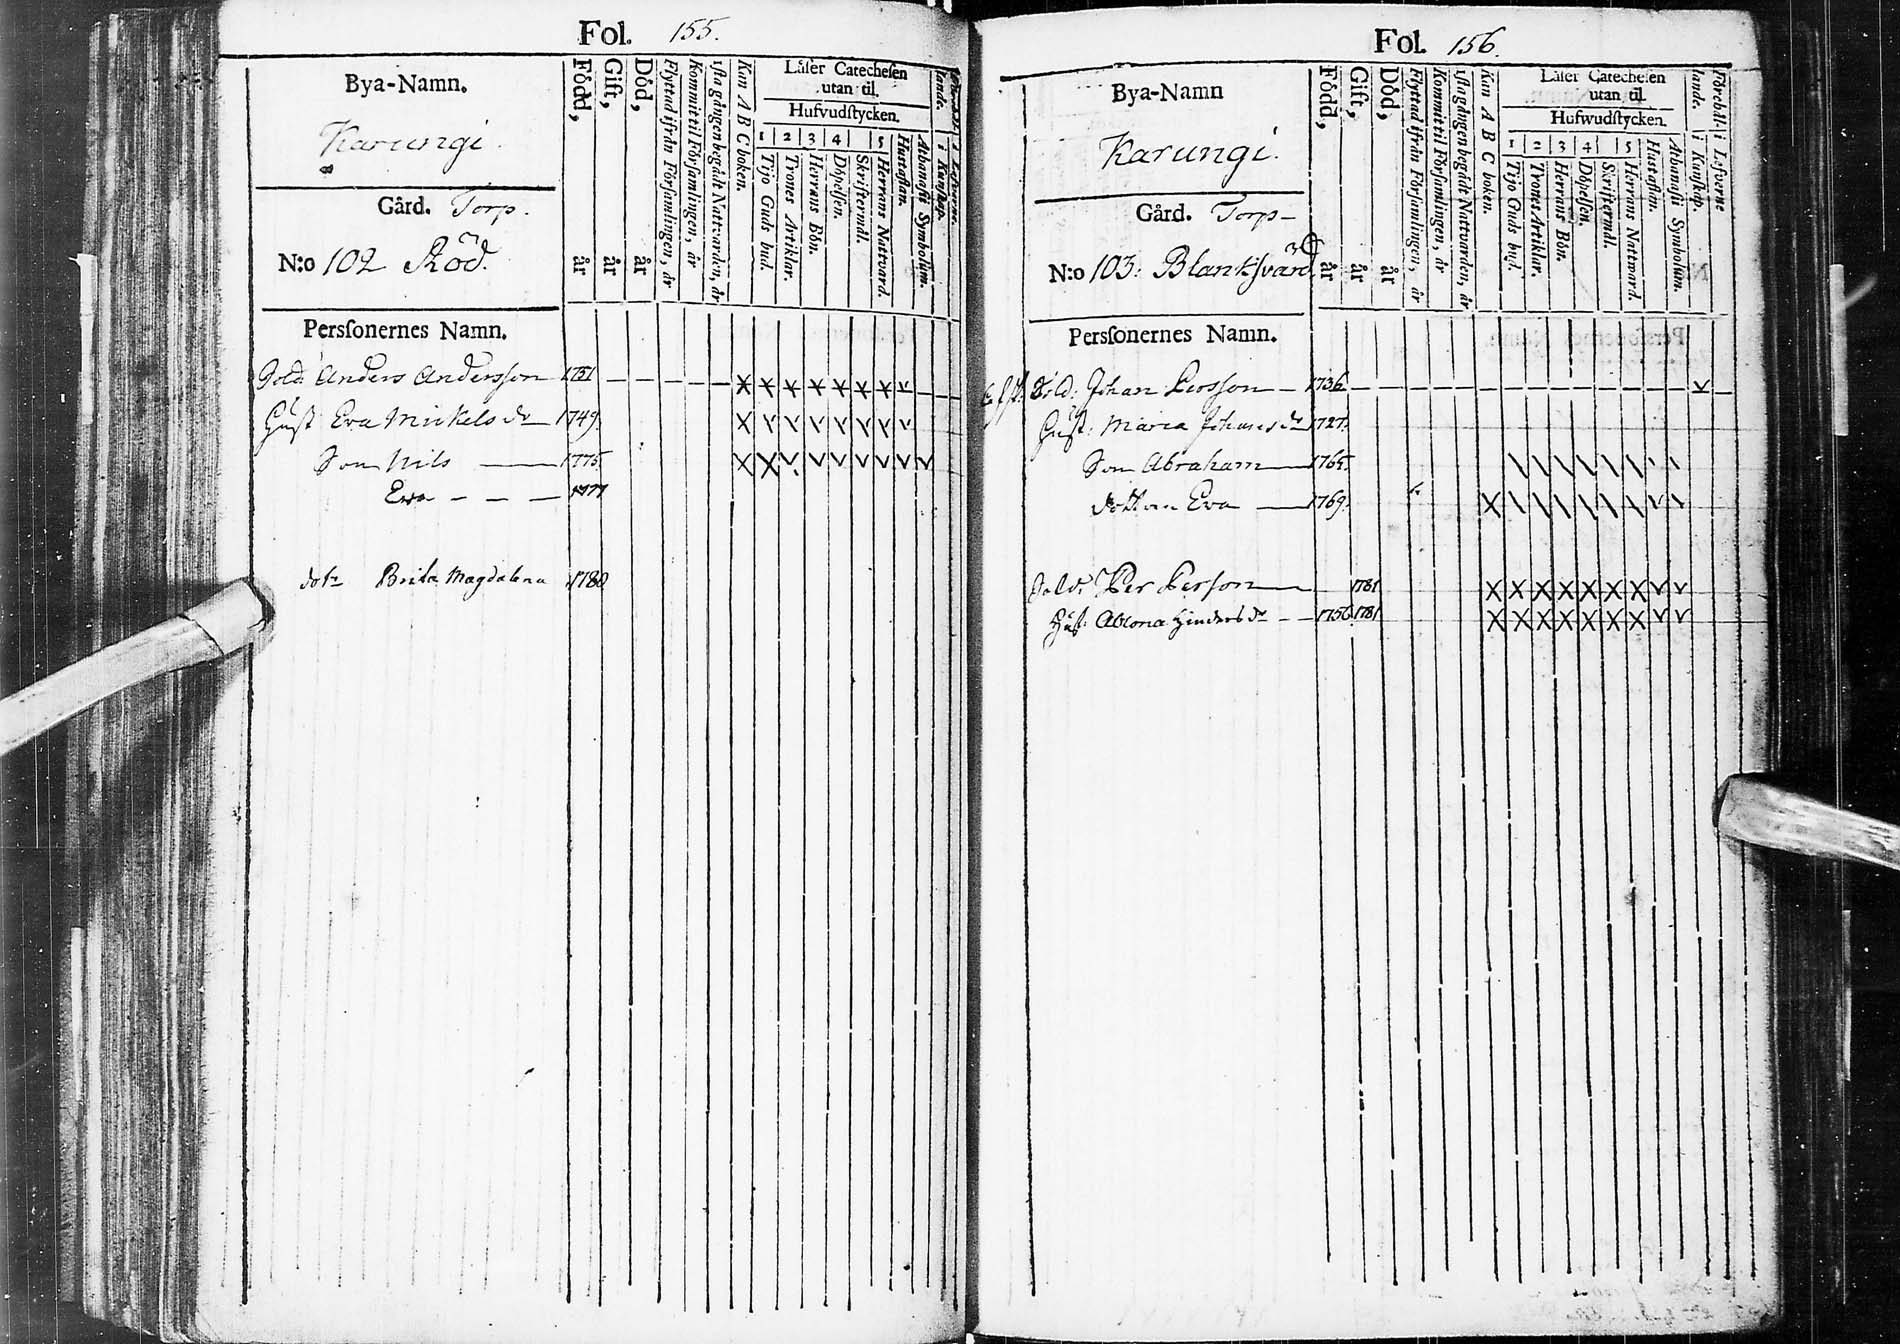 Fol. 155.
Bya-Namn.
Karungi.
Gård. Torp.
N:o 102 Röd.
Född, år
Gift, år
Död, år
Flyttad ifrån Församlingen, år
Kommit til Församlingen, år
1sta gången begådt Nattvarden, år
Kan A B C boken.
Läser Catechesen utan til.
Hufvudstycken.
1 2 3 4 5
Tijo Guds bud.
Trones Artiklar.
Herrans Bön.
Döpelsen.
Skriftermål.
Herrans Nattvard.
Hustaflan.
Athanasii Symbolum.
i Kunskap.
Personernes Namn.
Sold. Anders Andersson 1751
Hust Eva Mickelsdr 1749.
Son Nils 1775.
Ewa 1777
dotr Brita Magdalena 1780
Fol. 156.
Bya-Namn
Karungi.
Gård. Torp
N:o 103: Blanksvärd
Född, år
Gift, år
Död, år
Flyttad ifrån Församlingen, år
Kommit til Församlingen, år
1sta gången begådt Nattvarden, år
Kan A B C boken.
Läser Catechesen utan til.
Hufwudstycken.
1 2 3 4 5
Tijo Guds bud.
Trones Artiklar.
Herrans Bön.
Döpelsen.
Skriftermål.
Herrans Nattvard.
Hustaflan.
Athanasii Symbolum.
i Kunskap.
i Lefverne
Personernes Namn.
Sold: Johan Persson 1736
Hust: Maria Johansdr 1727.
Son Abraham 1765.
dottren Eva 1769.
Sold: Per Person 1781
Hust. Abrona Hindersdr 1756. 1781